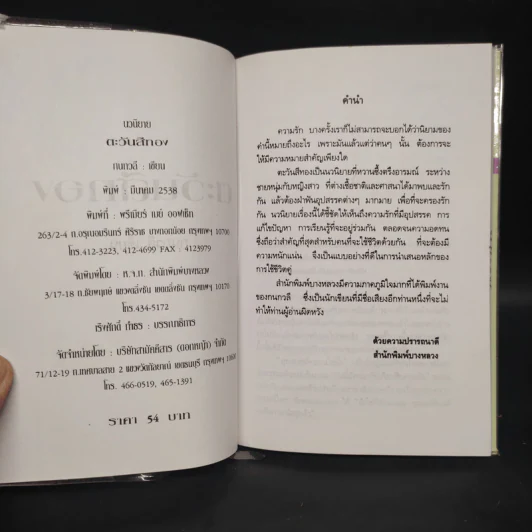 นวนิยาย
ตะวันสีทอง
กนกวลี : เขียน
พิมพ์ : มีนาคม 2538
พิมพ์ที่ : พรีเมียร์ เมย์ ออฟเซ็ท
263/2-4 ถ.อรุณอมรินทร์ ศิริราช บางกอกน้อย กรุงเทพฯ 10700
โทร.412-3223, 412-4699 FAX : 4123979
จัดพิมพ์โดย : ห.จ.ก. สำนักพิมพ์บางหลวง
3/17-18 ถ.ชัยพฤกษ์ แขวงตลิ่งชัน เขตตลิ่งชัน กรุงเทพฯ 10170
โทร.434-5172
เริงศักดิ์ กำธร : บรรณาธิการ
จัดจำหน่ายโดย : บริษัทสามัคคีสาร (ดอกหญ้า) จำกัด
71/12-19 ถ.เทศบาลสาย 2 แขวงวัดกัลยาณ์ เขตธนบุรี กรุงเทพฯ 10600
โทร. 466-0519, 465-1391
ราคา 54 บาท
คำนำ
ความรัก บางครั้งเราก็ไม่สามารถจะบอกได้ว่านิยามของ
คำนี้หมายถึงอะไร เพราะมันแล้วแต่ว่าคนๆ นั้น ต้องการจะ
ให้มีความหมายสำคัญเพียงใด
ตะวันสีทองเป็นนวนิยายที่หวานซึ้งตรึงอารมณ์ ระหว่าง
ชายหนุ่มกับหญิงสาว ที่ต่างเชื้อชาติและศาสนาได้มาพบและรัก
กัน แล้วต้องฝ่าฟันอุปสรรคต่างๆ มากมาย เพื่อที่จะครองรัก
กัน นวนิยายเรื่องนี้ได้ชี้ชัดให้เห็นถึงความรักที่มีอุปสรรค การ
แก้ไขปัญหา การเรียนรู้ที่จะอยู่ร่วมกัน ตลอดจนความอดทน
ซึ่งถือว่าสำคัญที่สุดสำหรับคนที่จะใช้ชีวิตด้วยกัน ที่จะต้องมี
ความหนักแน่น จึงเป็นแบบอย่างที่ดีในการนำเสนอหลักของ
การใช้ชีวิตคู่
สำนักพิมพ์บางหลวงมีความภาคภูมิใจมากที่ได้พิมพ์งาน
ของกนกวลี ซึ่งเป็นนักเขียนที่มีชื่อเสียงอีกท่านหนึ่งที่จะไม่
ทำให้ท่านผู้อ่านผิดหวัง
ด้วยความปรารถนาดี
สำนักพิมพ์บางหลวง